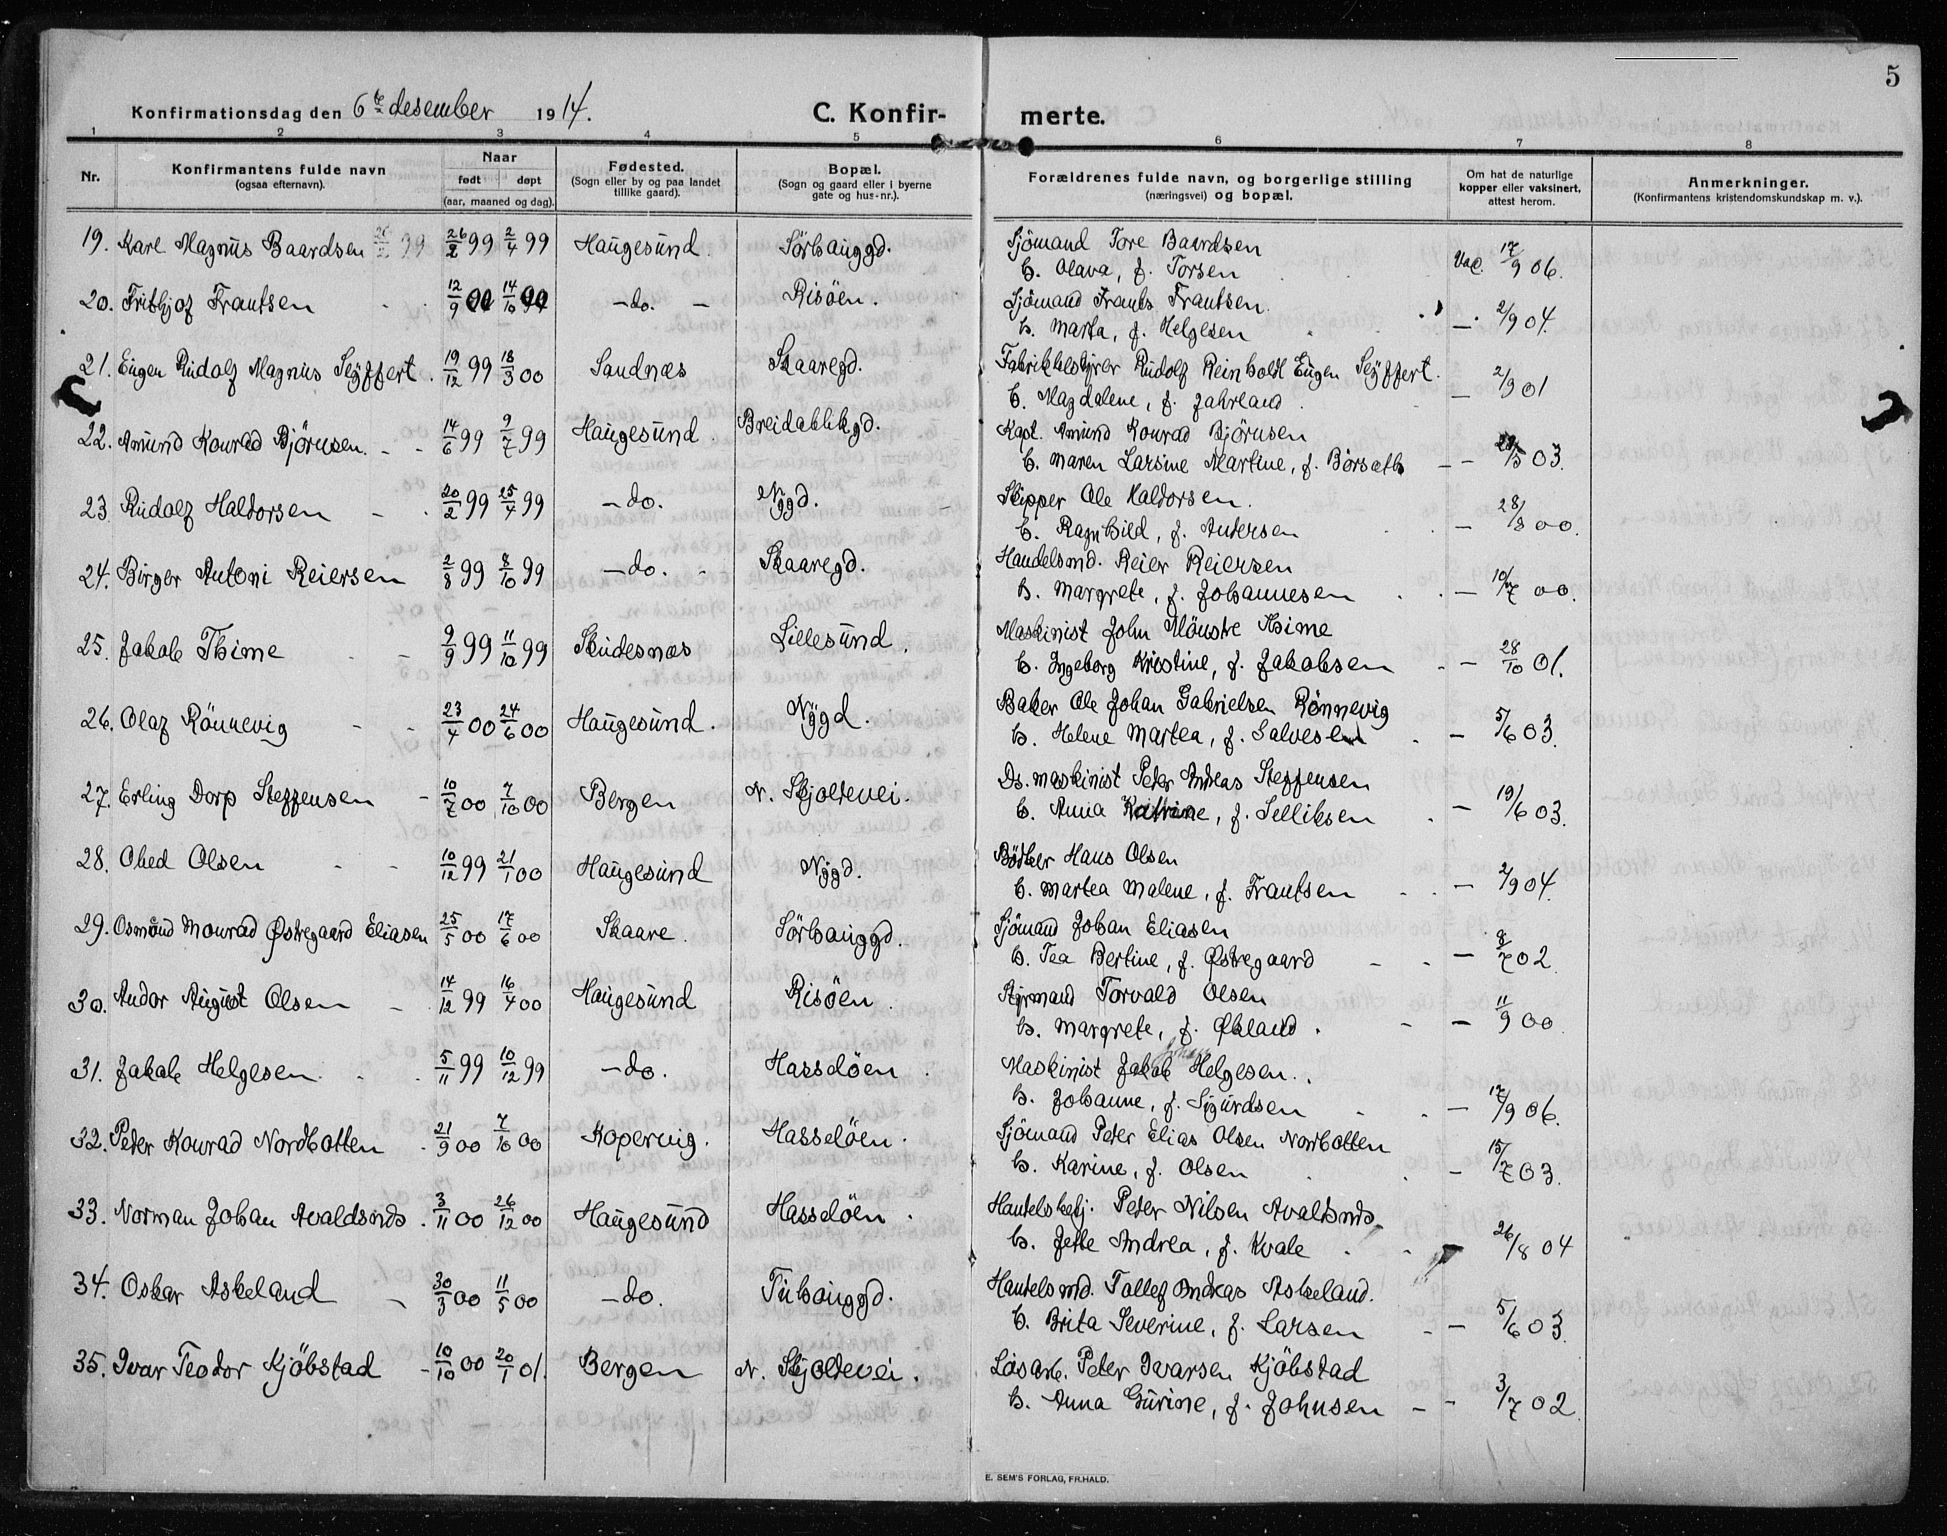 5
Konfirmationsdag den 6te desember 1914. C. Konfir- merte.
1 2 3 4 5 6 7 8
Nr. Konfirmantens fulde navn (ogsaa efternavn). Naar født døpt (aar, maaned og dag). Fødested. (Sogn eller by og paa landet tillike gaard). Bopæl. (Sogn og gaard eller i byerne gate og hus-nr.). Forældrenes fulde navn, og borgerlige stilling (næringsvei) og bopæl. Om hat de naturlige kopper eller vaksinert, attest herom. Anmerkninger. (Konfirmantens kristendomskundskap m. v.).
19. Karl Magnus Baardsen 26/2 99 26/2 99 2/4 99 Haugesund. Sörhauggd. Sjömand Tore Baardsen
h. Olava, f. Torsen Vac. 17/9 06.
20. Fritbjof Frantsen 12/9 00 14/10 00 - do. - Risöen. Sjömand Frants Frantsen.
h. Marta, f. Helgesen - 2/9 04.
21. Eugen Rudolf Magnus Seÿffert. 19/12 99 18/3 00 Sandnæs Skaaregd. Fabrikbestyrer Rudolf Reinholdt Eugen Seÿffert.
h. Magdalene, f. Jahrland. - 2/9 01
22. Amund Konrad Björnsen. 14/6 99 9/7 99 Haugesund. Breidablikgd. Kapt. Amund Konrad Björnsen
h. Maren Larsine Martine, f. Börsæth - - 03.
23. Rudolf Haldorsen 20/2 99 25/4 99 - do. Nÿgd. Skipper Ole Haldorsen.
h. Ragnhild, f. Andersen - 28/8 00.
24. Birger Antoni Reiersen 2/8 99 8/10 99 - do. - Skaaregd. Handelsmd. Reier Reiersen
h. Margrete, f. Johannesen - 10/7 00.
25. Jakob Thime 9/9 99 11/10 99 Skudesnæs Lillesund. Maskinist John Mönstre Thime
h. Ingeborg Kristine, f. Jakobsen - 28/10 01.
26. Olaf Rönnevig 23/4 00 24/6 00 Haugesund. Nÿgd. Baker Ole Johan Gabrielsen Rönnevig
h. Helene Martea, f. Salvesen - 5/6 03.
27. Erling Dorp Steffensen 10/7 00 7/10 00 Bergen N. Skjoldevei. Ds. maskinist Peter Andreas Steffensen
h. Anna Katrine, f.Selliksen - 19/6 03.
28. Obed Olsen 10/12 99 21/1 00 Haugesund Nÿgd. Bödker Hans Olsen
h. Martea Malene, f. Frantsen - 2/9 04.
29. Osmund Monrad Østregaard Eliasen 25/5 00 17/6 00 Skaare. Sörhauggd. Sjömand Johan Eliasen
h. Tea Bertine, f. Østregaard - 9/7 02.
30. Andor August Olsen 14/12 99 16/4 00 Haugesund Risöen. Styrmand Torvald Olsen
h. Margrete, f. Økland. - 11/9 00.
31. Jakob Helgesen. 5/11 99 10/12 99 - do. Hasselöen. Maskinist Jakob Helgesen.
h. Johanne, f. Sigurdsen - 17/9 06.
32. Peter Konrad Nordbotten 21/9 00 7/10 00 Kopervig. Hasselöen. Sjömand Peter Elias Olsen Norbotten
h. Karine, f. Olsen - 15/7 03.
33. Norman Johan Avaldsnds. 3/11 00 26/12 00 Haugesund Hasselöen. Handelsbetj. Peter Nilsen Avaldsnds.
h. Jette Andrea, f. Kvale - 26/8 04
34. Oskar Askeland 30/3 00 11/5 00 - do. Tuhauggd. Handelsmd. Tollef Andreas Askeland.
h. Brita Severine, f. Larsen - 5/6 03.
35. Ivar Teodor Kjöbstad 10/10 00 20/1 01. Bergen N. Skjoldevei. Lösarb. Peter Ivarsen Kjöbstad
h. Anna Gurine, f. Johnsen - 3/7 02.
E. SEM'S FORLAG, FR.HALD.